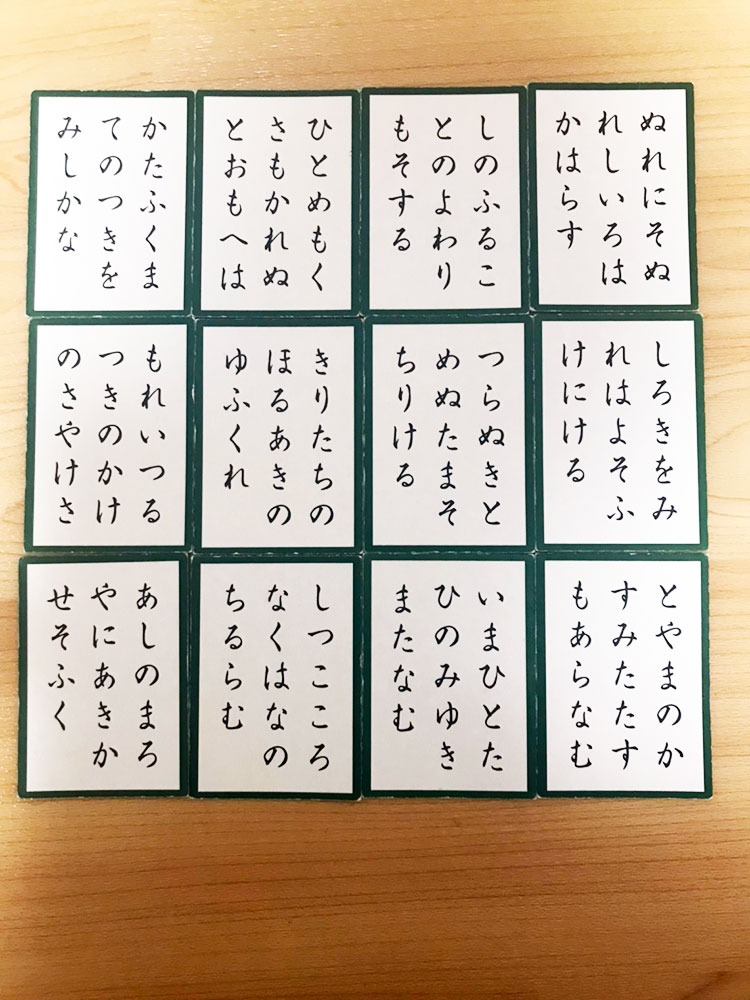 ぬれにそぬ
れしいろは
かはらす
しのふるこ
とのよわり
もそする
ひとめもく
さもかれぬ
とおもへは
かたふくま
てのつきを
みしかな
しろきをみ
れはよそふ
けにける
つらぬきと
めぬたまそ
ちりける
きりたちの
ほるあきの
ゆふくれ
もれいつる
つきのかけ
のさやけさ
とやまのか
すみたたす
もあらなむ
いまひとた
ひのみゆき
またなむ
しつこころ
なくはなの
ちるらむ
あしのまろ
やにあきか
せそふく